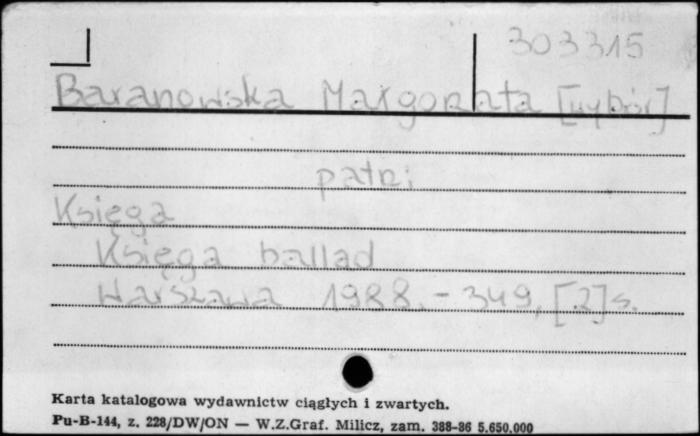 303315
Baranowska Małgorzata [wybór]
patrz
Księga
Księga ballad
Warszawa 1988. - 349, [2] s.
Karta katalogowa wydawnictw ciągłych i zwartych.
Pu-B-144, z. 228/DW/ON — W.Z.Graf. Milicz, zam. 388-86 5.650.000